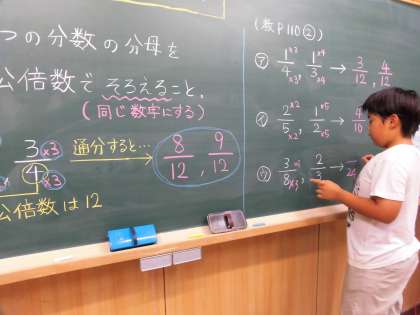 つの分数の分母を
公倍数でそろえること.
(同じ数字にする)
3×3
4×3
通分すると…
8/12, 9/12
公倍数は12
(教P110②)
㋐ 1×3/4×3, 1×4/3×4 → 3/12, 4/12
㋑ 2×2/5×2, 1×5/2×5 → 4/10
㋒ 3/8×3, 2/3 → /24